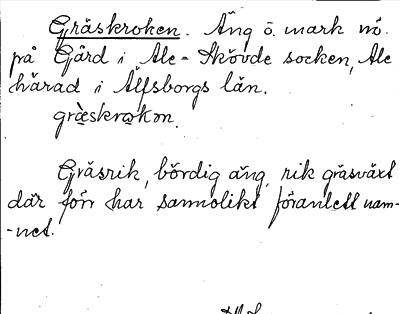 Gräskroken. Äng o. mark nö.
på Gård i Ale-Skövde socken, Ale
härad i Älfsborgs län.
græ̀skrȧkɔn.
Gräsrik, bördig äng, rik gräsväxt
där förr har sannolikt föranlett nam-
-net.